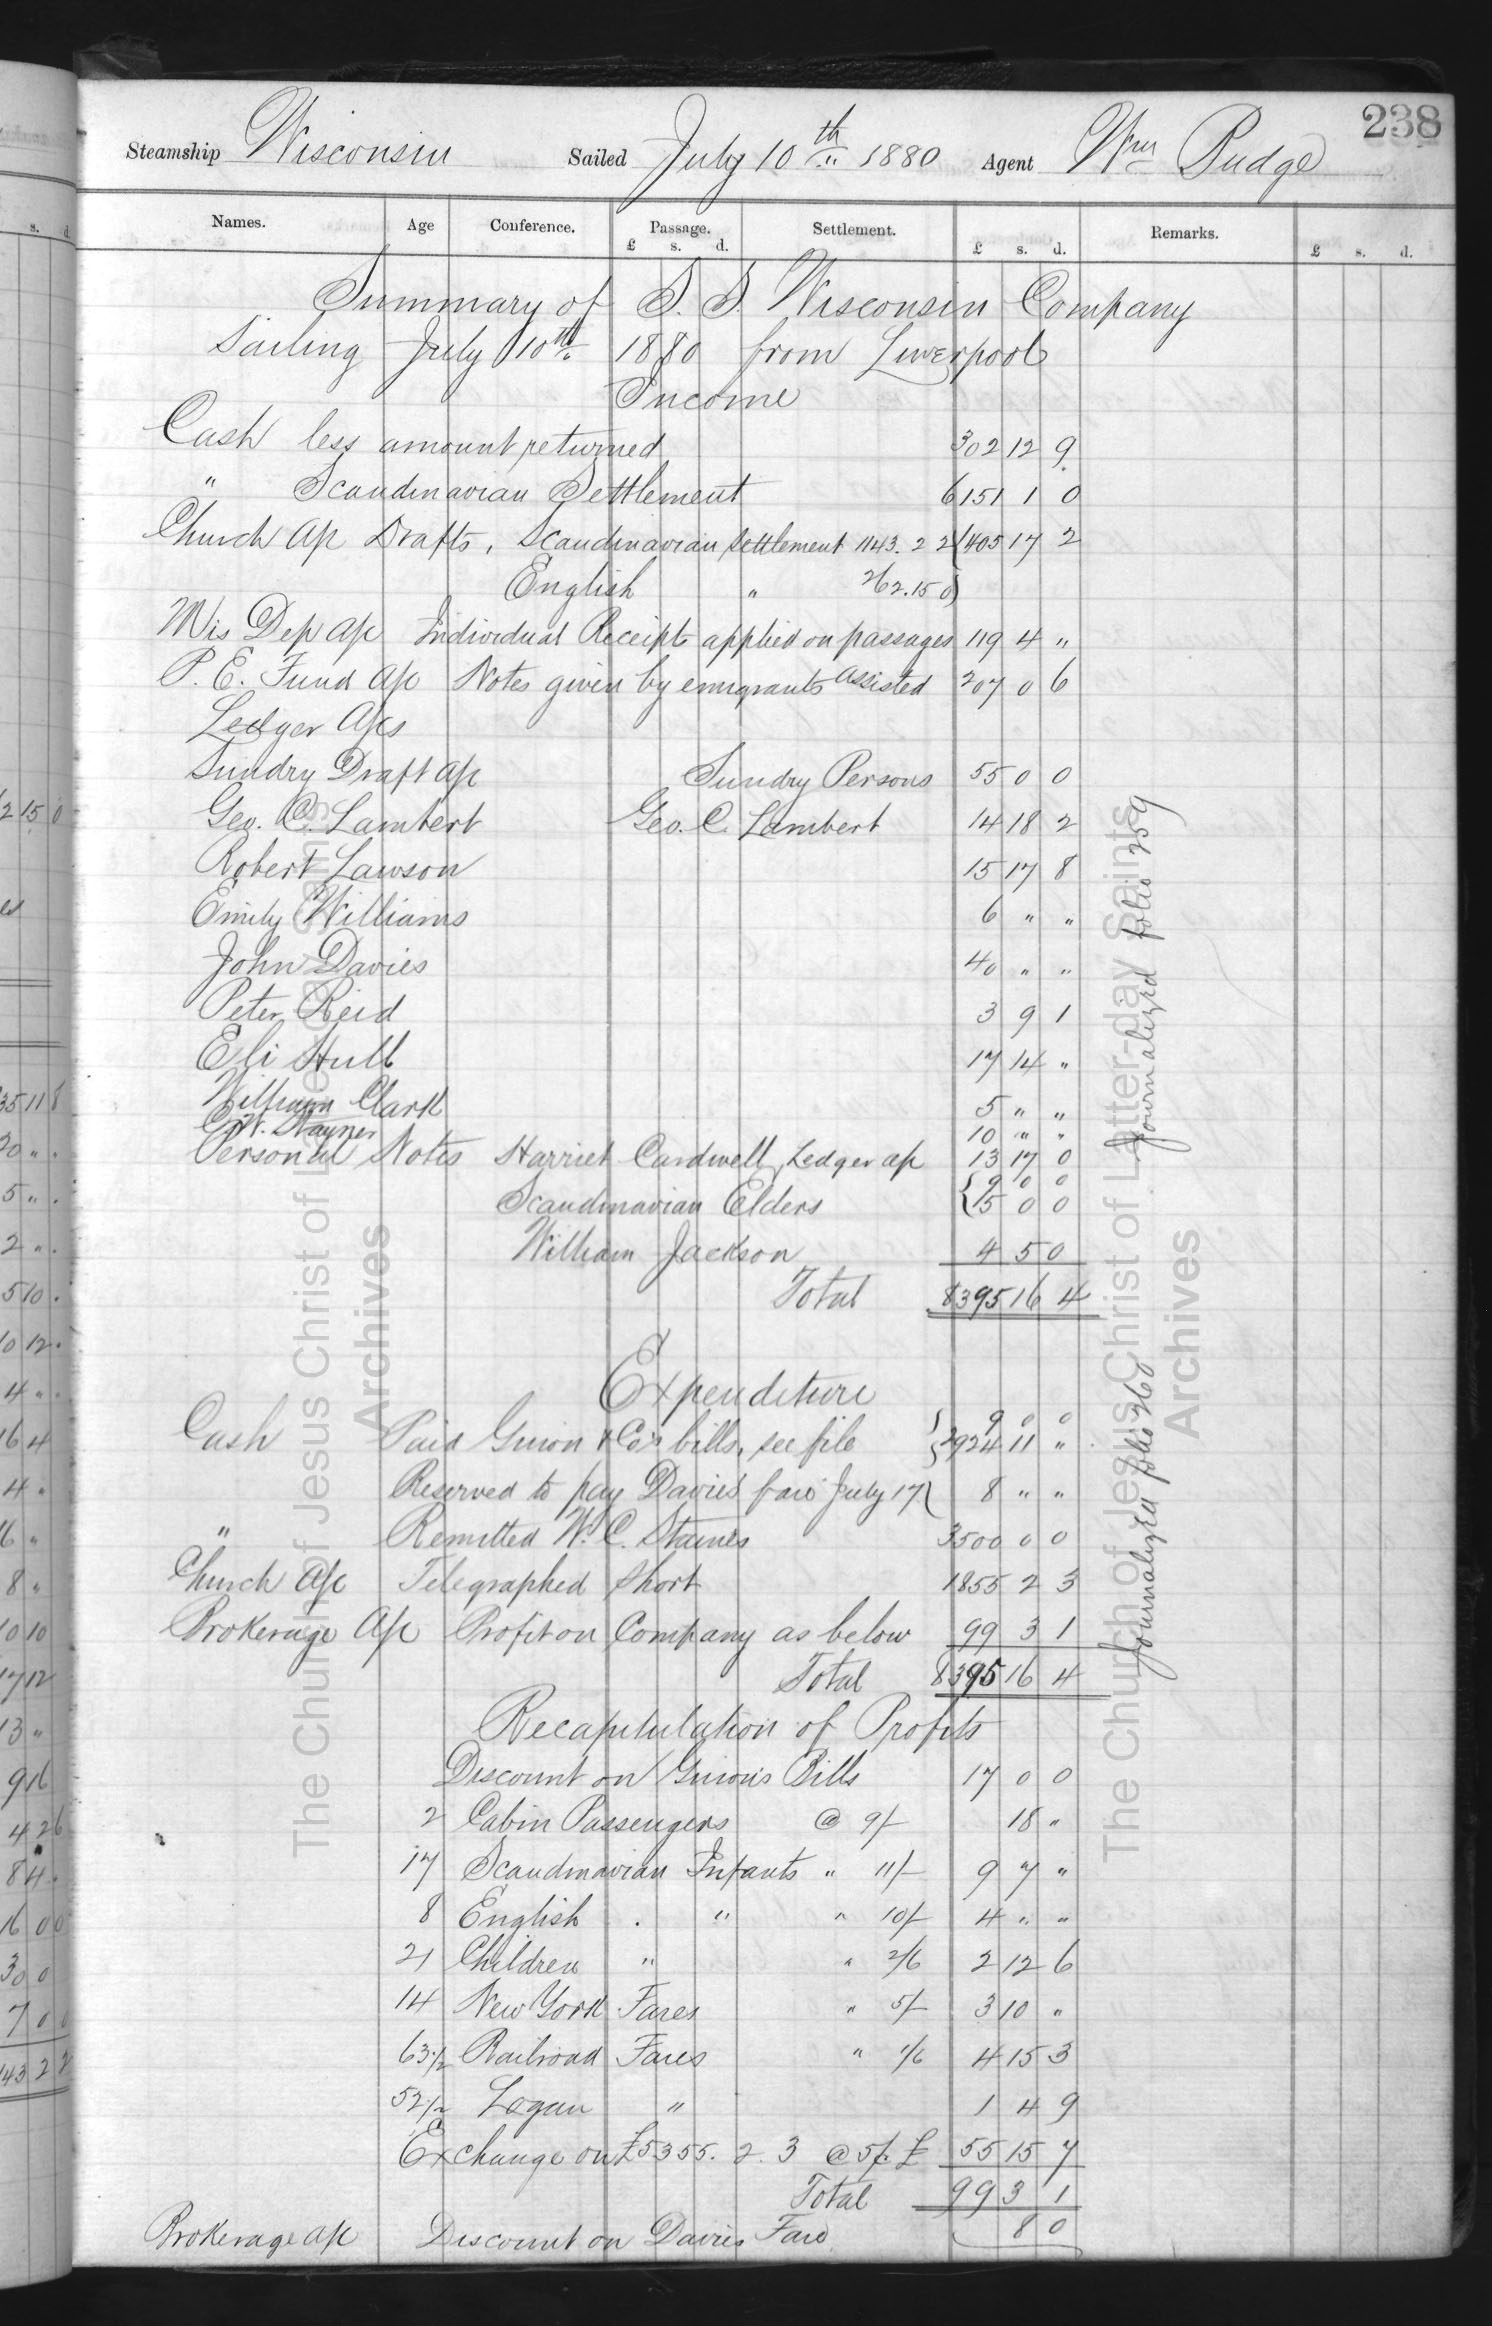 238
Steamship Wisconsin Sailed July 10th 1880 Agent Wm Budge
Names. Age Conference. Passage. Settlement. Remarks.
£ s. d. £ s. d. £ s. d.
Summary of S. S. Wisconsin Company
Sailing July 10th 1880 from Liverpool
Income
Cash less amount returned 302 12 9
" Scandinavian Settlement 6151 1 0
Church a/c Drafts, Scandinavian Settlement 1143. 2 2 1405 17 2
English " 262. 15 0
Mis Dep a/c Individual Receipts applied on passages 119 4 "
P. E. Fund a/c Notes given by emigrants assisted 207 0 6
Ledger a/cs
Sundry Draft a/c Sundry Persons 55 0 0
Geo. C. Lambert Geo. C. Lambert 14 18 2
Robert Lawson 15 17 8
Emily Williams 6 " "
John Davies 40 " "
Peter Reid 3 9 1
Eli Hull 17 14 "
William Clark 5 " "
C. W. Stayner 10 " "
Personal Notes Harriet Cardwell, Ledger a/c 13 17 0
9 0 0
Scandinavian Elders 15 0 0
William Jackson 4 5 0
Total 8395 16 4
Journalized folio 259
Expenditure
9 0 0
Cash Paid Guion & Co's bills, see file 2924 11 "
Reserved to pay Davies fare July 17 8 " "
" Remitted W. C. Staines 3500 0 0
Church a/c Telegraphed Short 1855 2 3
Brokerage a/c Profit on Company as below 99 3 1
Total 8395 16 4
Journalized folio 260
Recapitulation of Profits
Discount on Guion's Bills 17 0 0
2 Cabin Passengers @ 9/- 18 "
17 Scandinavian Infants " 11/- 9 7 "
8 English . " " 10/- 4 " "
21 Children " " 2/6 2 12 6
14 New York Fares " 5/- 3 10 "
63½ Railroad Fares " 1/6 4 15 3
52½ Logan " 1 4 9
Exchange on £5355. 2. 3 @ 5/. £ 55 15 7
Total 99 3 1
Brokerage a/c Discount on Davies Fare 8 0
The Church of Jesus Christ of Latter-day Saints
Archives
The Church of Jesus Christ of Latter-day Saints
Archives